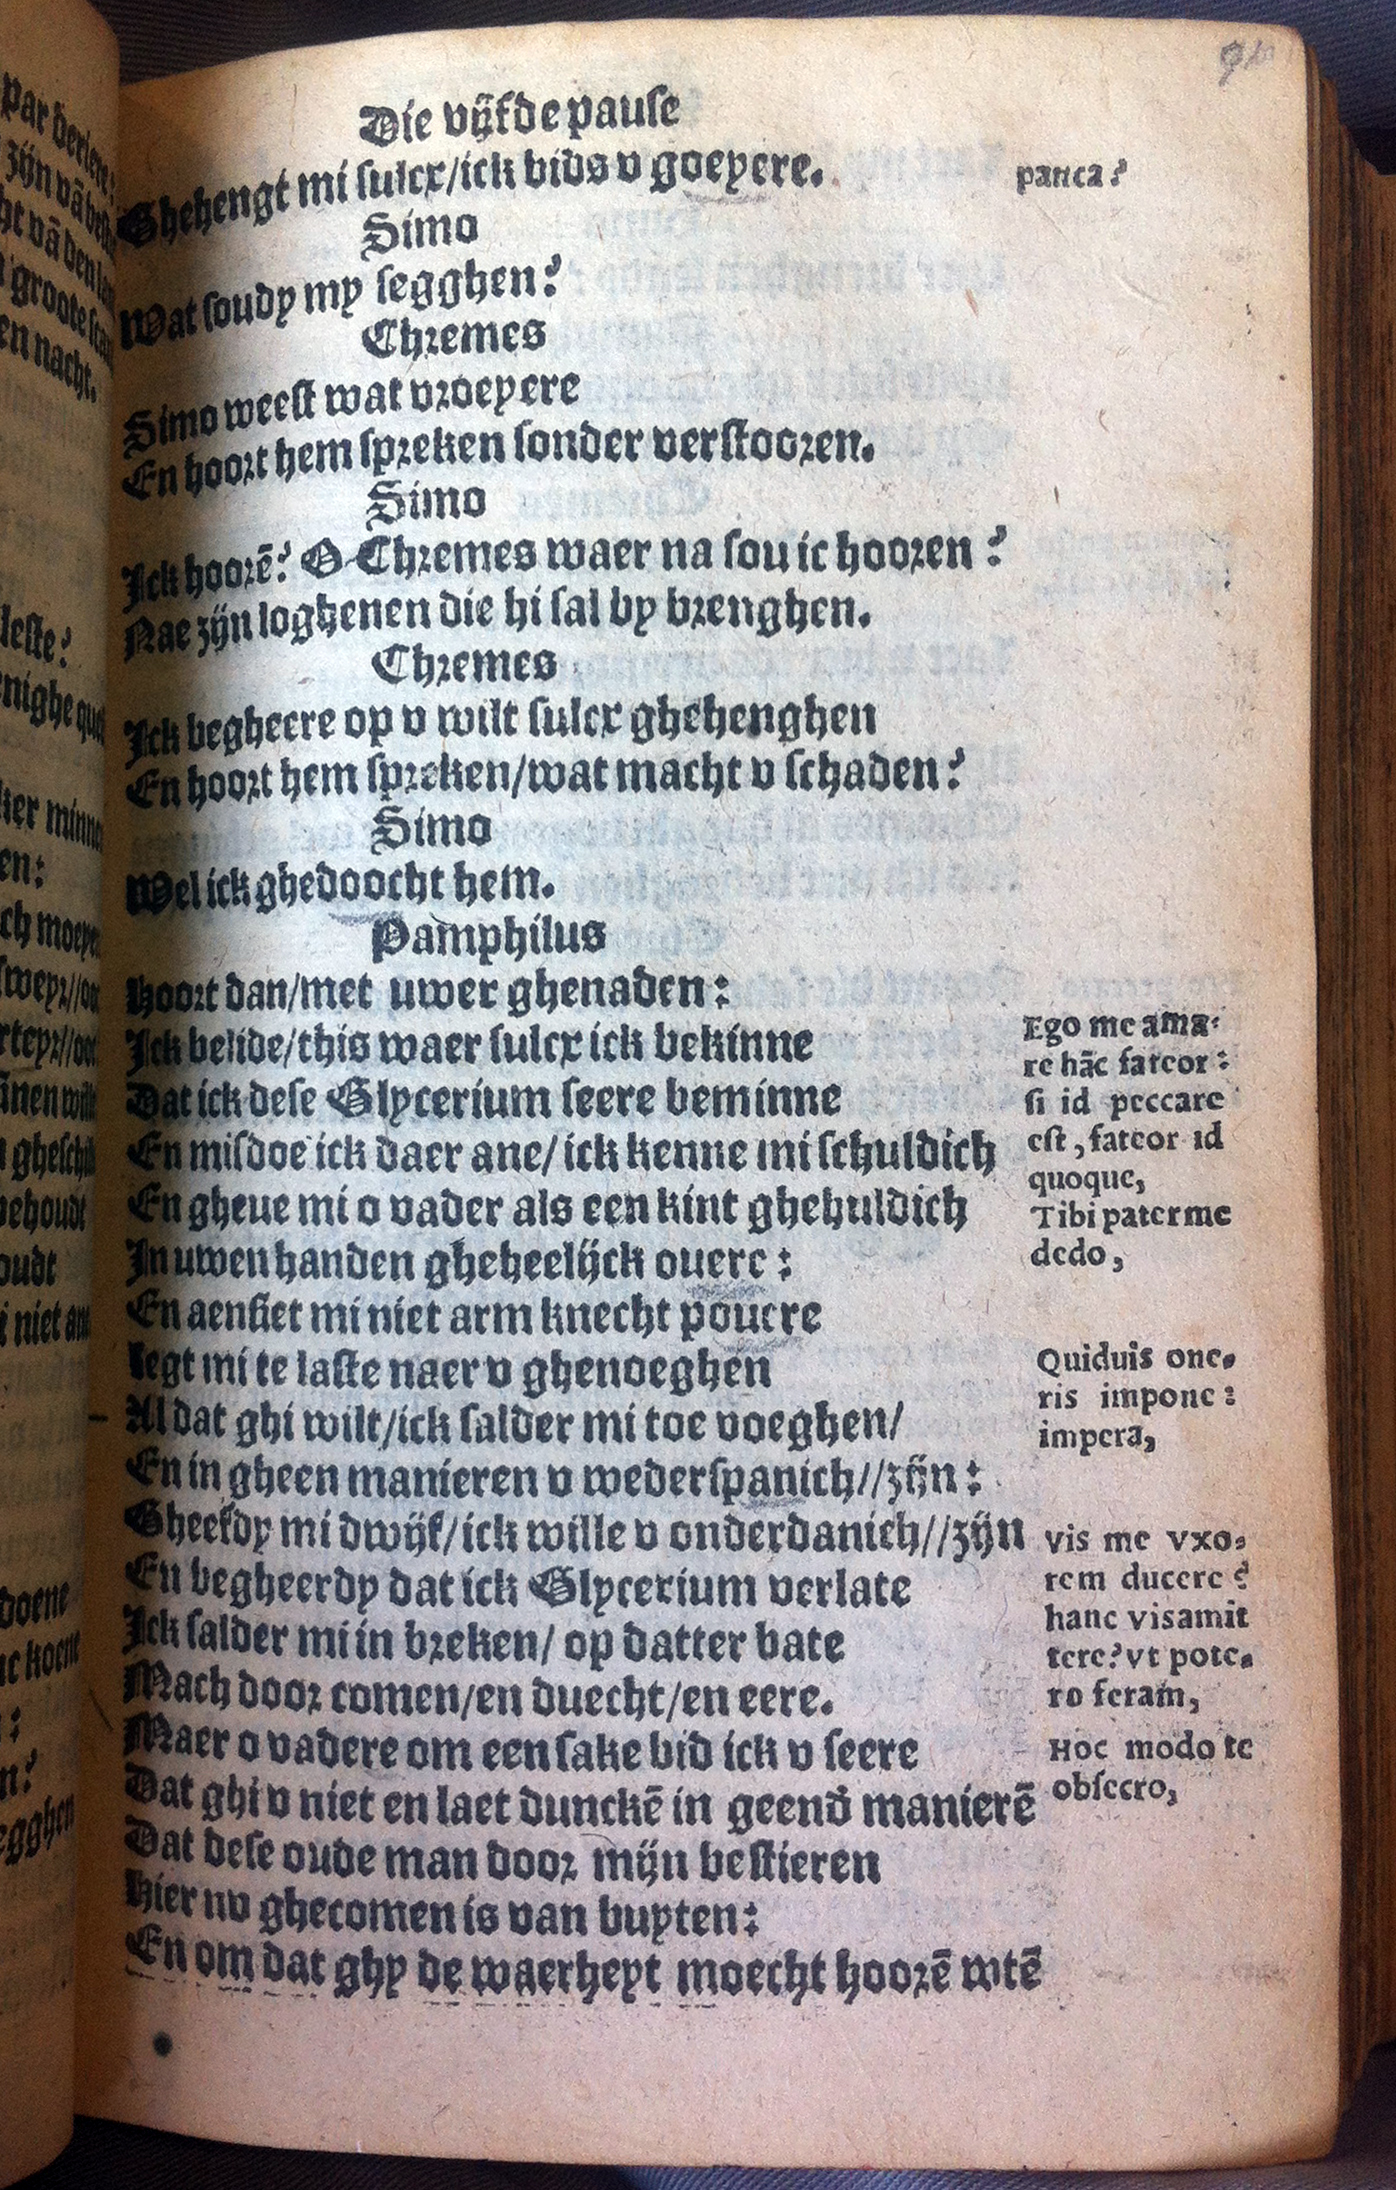 Die vijfde pause
Ghehengt mi sulcx/ick bids v goeyere.
pauca?
Simo
Wat soudy my segghen?
Chremes
Simo weest wat vroeyere
En hoort hem spreken sonder verstooren.
Simo
Ick hoorē? O Chremes waer na sou ic hooren?
Nae zijn loghenen die hi sal by brenghen.
Chremes
Ick begheere op v wilt sulcx ghehenghen
En hoort hem spreken/wat macht v schaden?
Simo
Wel ick ghedoocht hem.
Pamphilus
Hoort dan/met uwer ghenaden:
Ick belide/this waer sulcx ick bekinne
Dat ick dese Glycerium seere beminne
En misdoe ick daer ane/ick kenne mi schuldich
En gheue mi o vader als een kint ghehuldich
In uwen handen gheheelijck ouere:
En aensiet mi niet arm knecht pouere
legt mi te laste naer v ghenoeghen
Al dat ghi wilt/ick salder mi toe voeghen/
En in gheen manieren v wederspanich//zijn:
Gheefdy mi dwijf/ick wille v onderdanich//zijn
En begheerdy dat ick Glycerium verlate
Ick salder mi in breken/op datter bate
Mach door comen/en duecht/en eere.
Maer o vadere om een sake bid ick v seere
Dat ghi v niet en laet dunckē in geend' manierē
Dat dese oude man door mijn bestieren
Hier nv ghecomen is van buyten:
En om dat ghy de waerheyt moecht hoorē wtē
Ego me ama-
re hāc fateor:
si id peccare
est, fateor id
quoque,
Tibi pater me
dedo,
Quiduis one-
ris impone:
impera,
Vis me vxo-
rem ducere?
hanc vis amit
tere? vt pote-
ro feram,
Hoc modo te
obsecro,